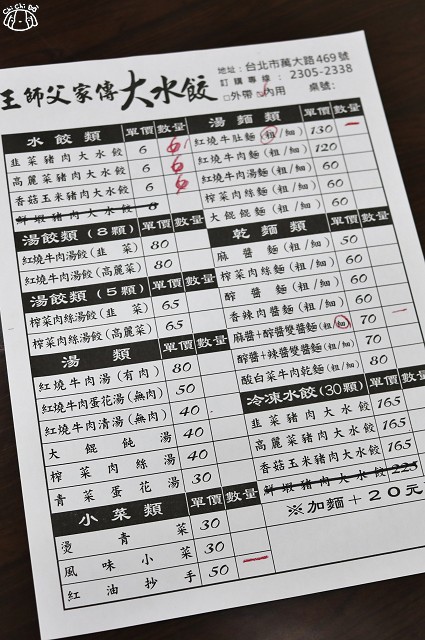 Chi Chi Boi
王師父家傳大水餃
地址:台北市萬大路469號
訂購專線:2305-2338
□外帶 ☑內用 桌號:
水餃類 單價 數量
韭菜豬肉大水餃 6 6
高麗菜豬肉大水餃 6 6
香菇玉米豬肉大水餃 6 6
鮮蝦豬肉大水餃 8
湯餃類(8顆) 單價 數量
紅燒牛肉湯餃(韭菜) 80
紅燒牛肉湯餃(高麗菜) 80
湯餃類(5顆) 單價 數量
榨菜肉絲湯餃(韭菜) 65
榨菜肉絲湯餃(高麗菜) 65
湯類 單價 數量
紅燒牛肉湯(有肉) 80
紅燒牛肉蛋花湯(無肉) 50
紅燒牛肉清湯(無肉) 40
大餛飩湯 40
榨菜肉絲湯 40
青菜蛋花湯 30
小菜類 單價 數量
燙青菜 30
風味小菜 30
紅油抄手 50 一
湯麵類 單價 數量
紅燒牛肚麵(粗/細) 130 一
紅燒牛肉麵(粗/細) 120
紅燒牛肉湯麵(粗/細) 60
榨菜肉絲麵(粗/細) 60
大餛飩麵(粗/細) 60
乾麵類 單價 數量
麻醬麵(粗/細) 50
榨菜肉絲麵(粗/細) 60
醡醬麵(粗/細) 60
香辣肉醬麵(粗/細) 60
麻醬+醡醬雙醬麵(粗/細) 70 一
醡醬+辣醬雙醬麵(粗/細) 70
酸白菜牛肉乾麵(粗/細) 80
冷凍水餃(30顆) 單價 數量
韭菜豬肉大水餃 165
高麗菜豬肉大水餃 165
香菇玉米豬肉大水餃 165
鮮蝦豬肉大水餃 225
※加麵+20元